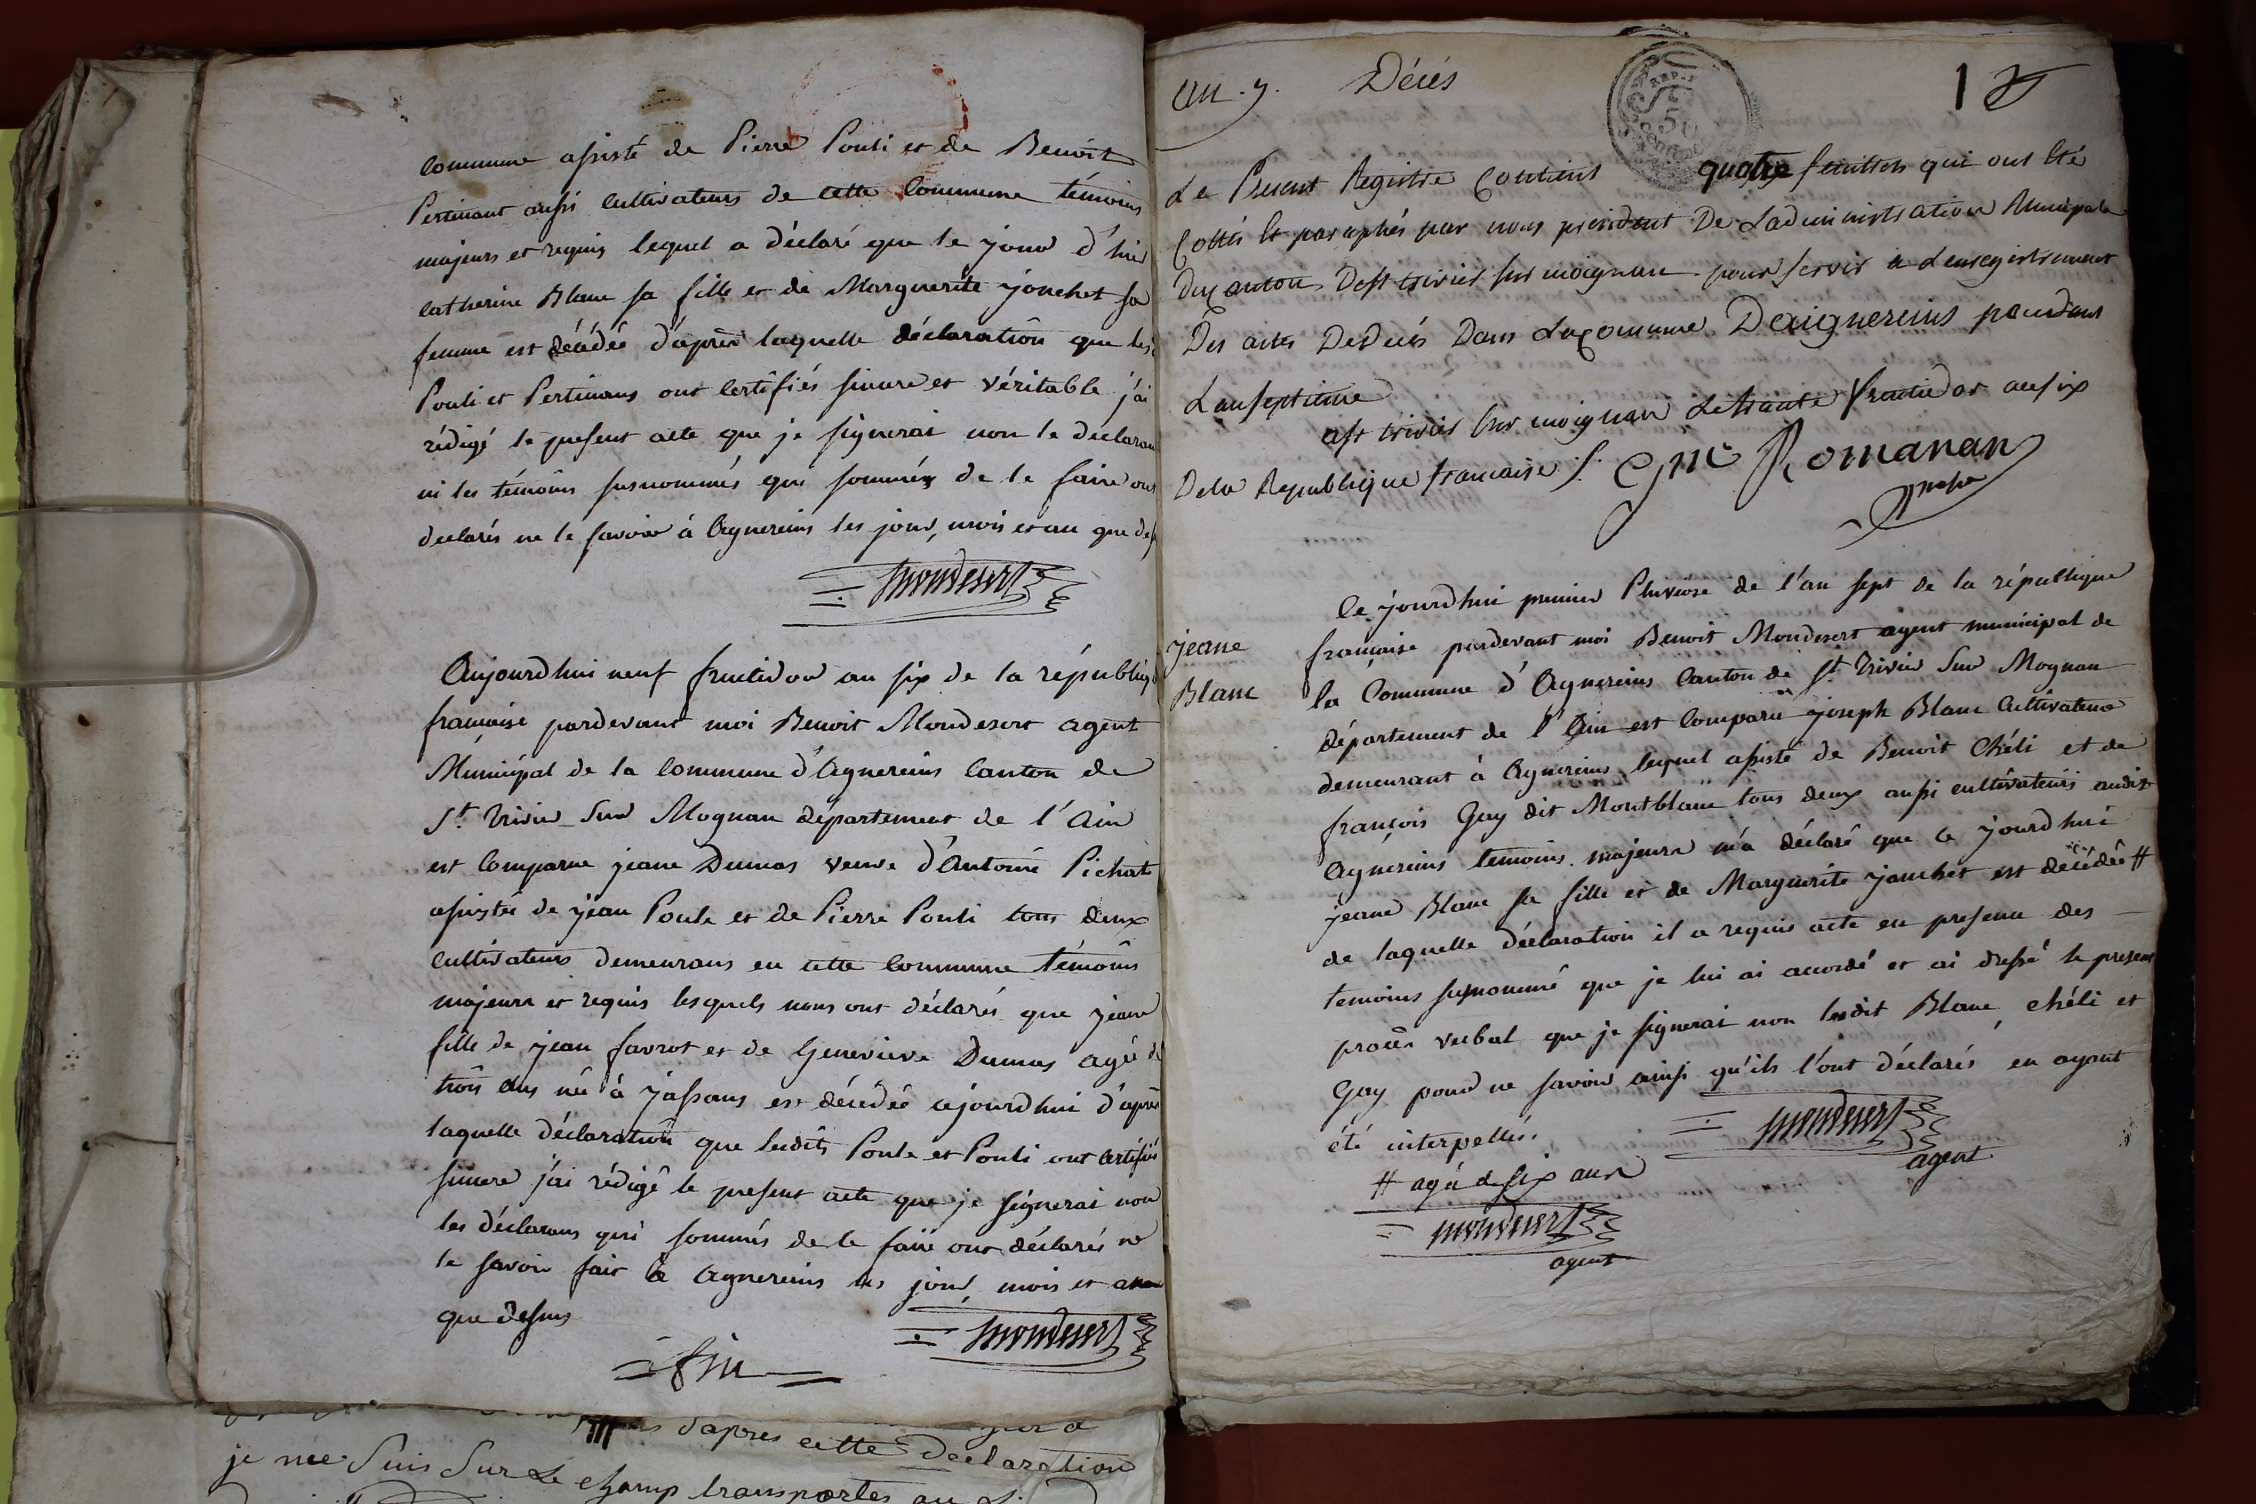 commune assisté de Pierre Pouli et de Benoit
Pertinant aussi cultivateurs de cette Commune témoins
majeurs et requis lequel a déclaré que le jour d'hier
catherine Blanc sa fille et de Marguerite jonchet sa
femme est décédée d'après laquelle déclaration que les
Pouli et Pertinans ont certifiés sincere et véritable j'ai
rédigé le present acte que je signerai non le declarant
ni les témoins susnommés qui sommés de le faire ont
declarés ne le savoir à Agnereins les jour, mois et an que des
Mondesert
Aujourd'hui neuf fructidor an six de la républiq
française pardevant moi Benoit Mondesert agent
Municipal de la Commune d'Agnereins Canton de
St. Trivier Sur Mognan département de l'Ain
est Comparue jeane Dumas veuve d'Antoine Pichat
assistée de jean Poule et de Pierre Pouli tous deux
cultivateurs demeurans en cette Commune témoins
majeurs et requis lesquels nous ont déclarés que jeane
fille de jean favrot et de Genevieve Dumas agée de
trois ans née à jassans est décédée cejourd'hui d'après
laquelle déclaration que lesdits Poule et Pouli ont certifiés
sincere j'ai rédigé le present acte que je signerai non
les déclarans qui sommés de le faire ont déclarés ne
le savoir fait à Agnereins les jour, mois et an
que dessus
Mondesert
fin
d'apres cette Declaration
je me Suis Sur Le champ transportés au
an .7. Décés
50
1
Le Present Registre Contient quatre feuillets qui ont Eté
Cottés Et paraphés par nous president De Ladministration Municipale
Du Canton De st trivier sur moignan pour servir a Lenregistrement
Des actes De Décés Dans La Commune Daignereins pendant
Lan septieme
a st trivier sur moignan Le trante fructidor an six
De la Republique francaise s. Cne Romanan
jeane
Blanc
Ce jourd'hui premier Pluviose de l'an sept de la république
française pardevant moi Benoit Mondesert agent municipal de
la Commune d'Agnereins Canton de St. Trivier Sur Mognan
département de l'Ain est Comparu joseph Blanc Cultivateur
demeurant à Agnereins lequel assisté de Benoit Chéli et de
françois Gay dit Montblanc tous deux aussi cultivateurs audit
Agnereins témoins majeurs m'a déclaré que ce jourd'hui
jeane Blanc sa fille et de Marguerite jonchet est décédée #
de laquelle déclaration il a requis acte en presence des
temoins susnommé que je lui ai accordé et ai dressé le present
procès verbal que je signerai non ledit Blanc, chéli et
Gay pour ne savoir ainsi qu'ils l'ont déclarés en ayant
été interpellés.
Mondesert
agent
# agée de six ans
Mondesert
agent